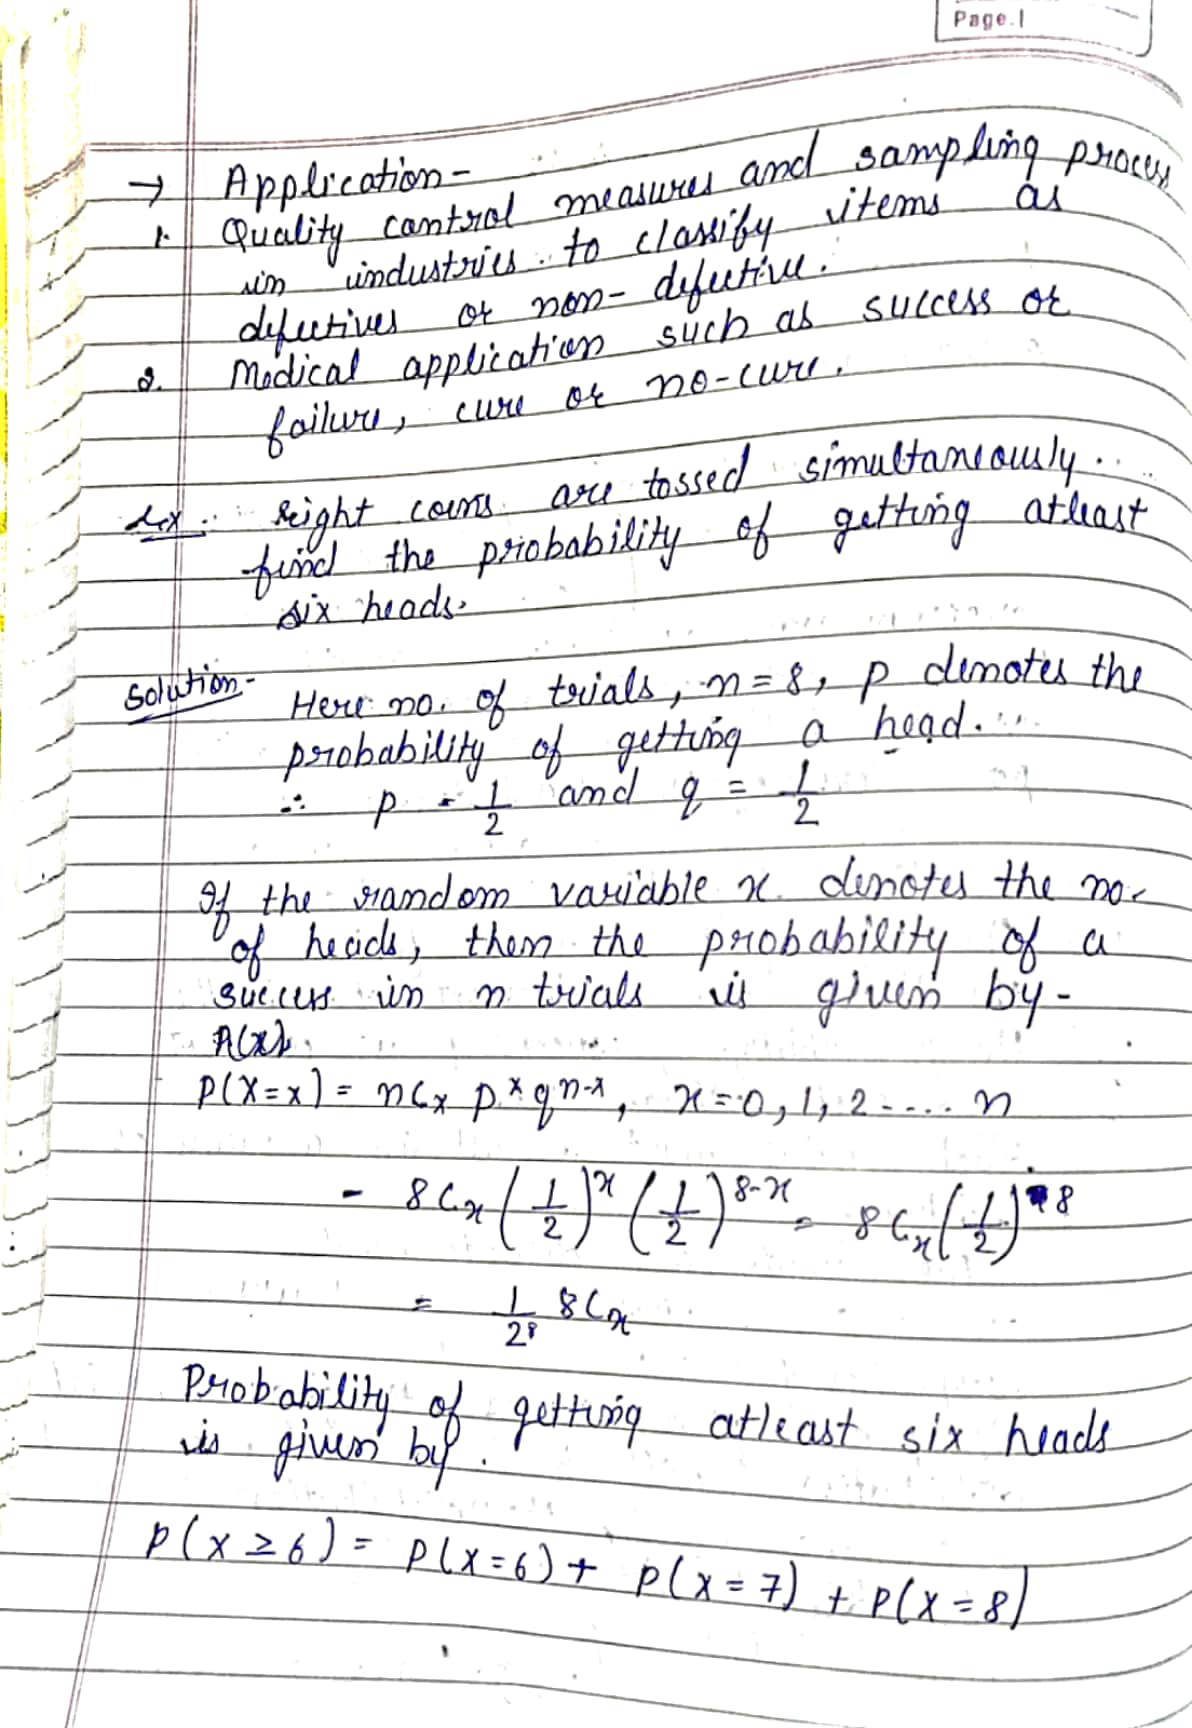 Page.1
→ Application-
1. Quality control measures and sampling process
in industries to classify items as
defectives or non-defective.
2. Medical application such as success or
failure, cure or no-cure.
Ex. Eight coins are tossed simultaneously.
find the probability of getting atleast
six heads.
Solution- Here no. of trials, n=8, p denotes the
probability of getting a head.
∴ p = 1/2 and q = 1/2
If the random variable x denotes the no.
of heads, then the probability of a
success in n trials is given by-
P(X=x) = nCx p^x q^n-x, x=0, 1, 2 .... n
= 8Cx (1/2)^x (1/2)^8-x = 8Cx (1/2)^8
= 1/2^8 8Cx
Probability of getting atleast six heads
is given by.
P(X ≥ 6) = P(X=6) + P(X=7) + P(X=8)